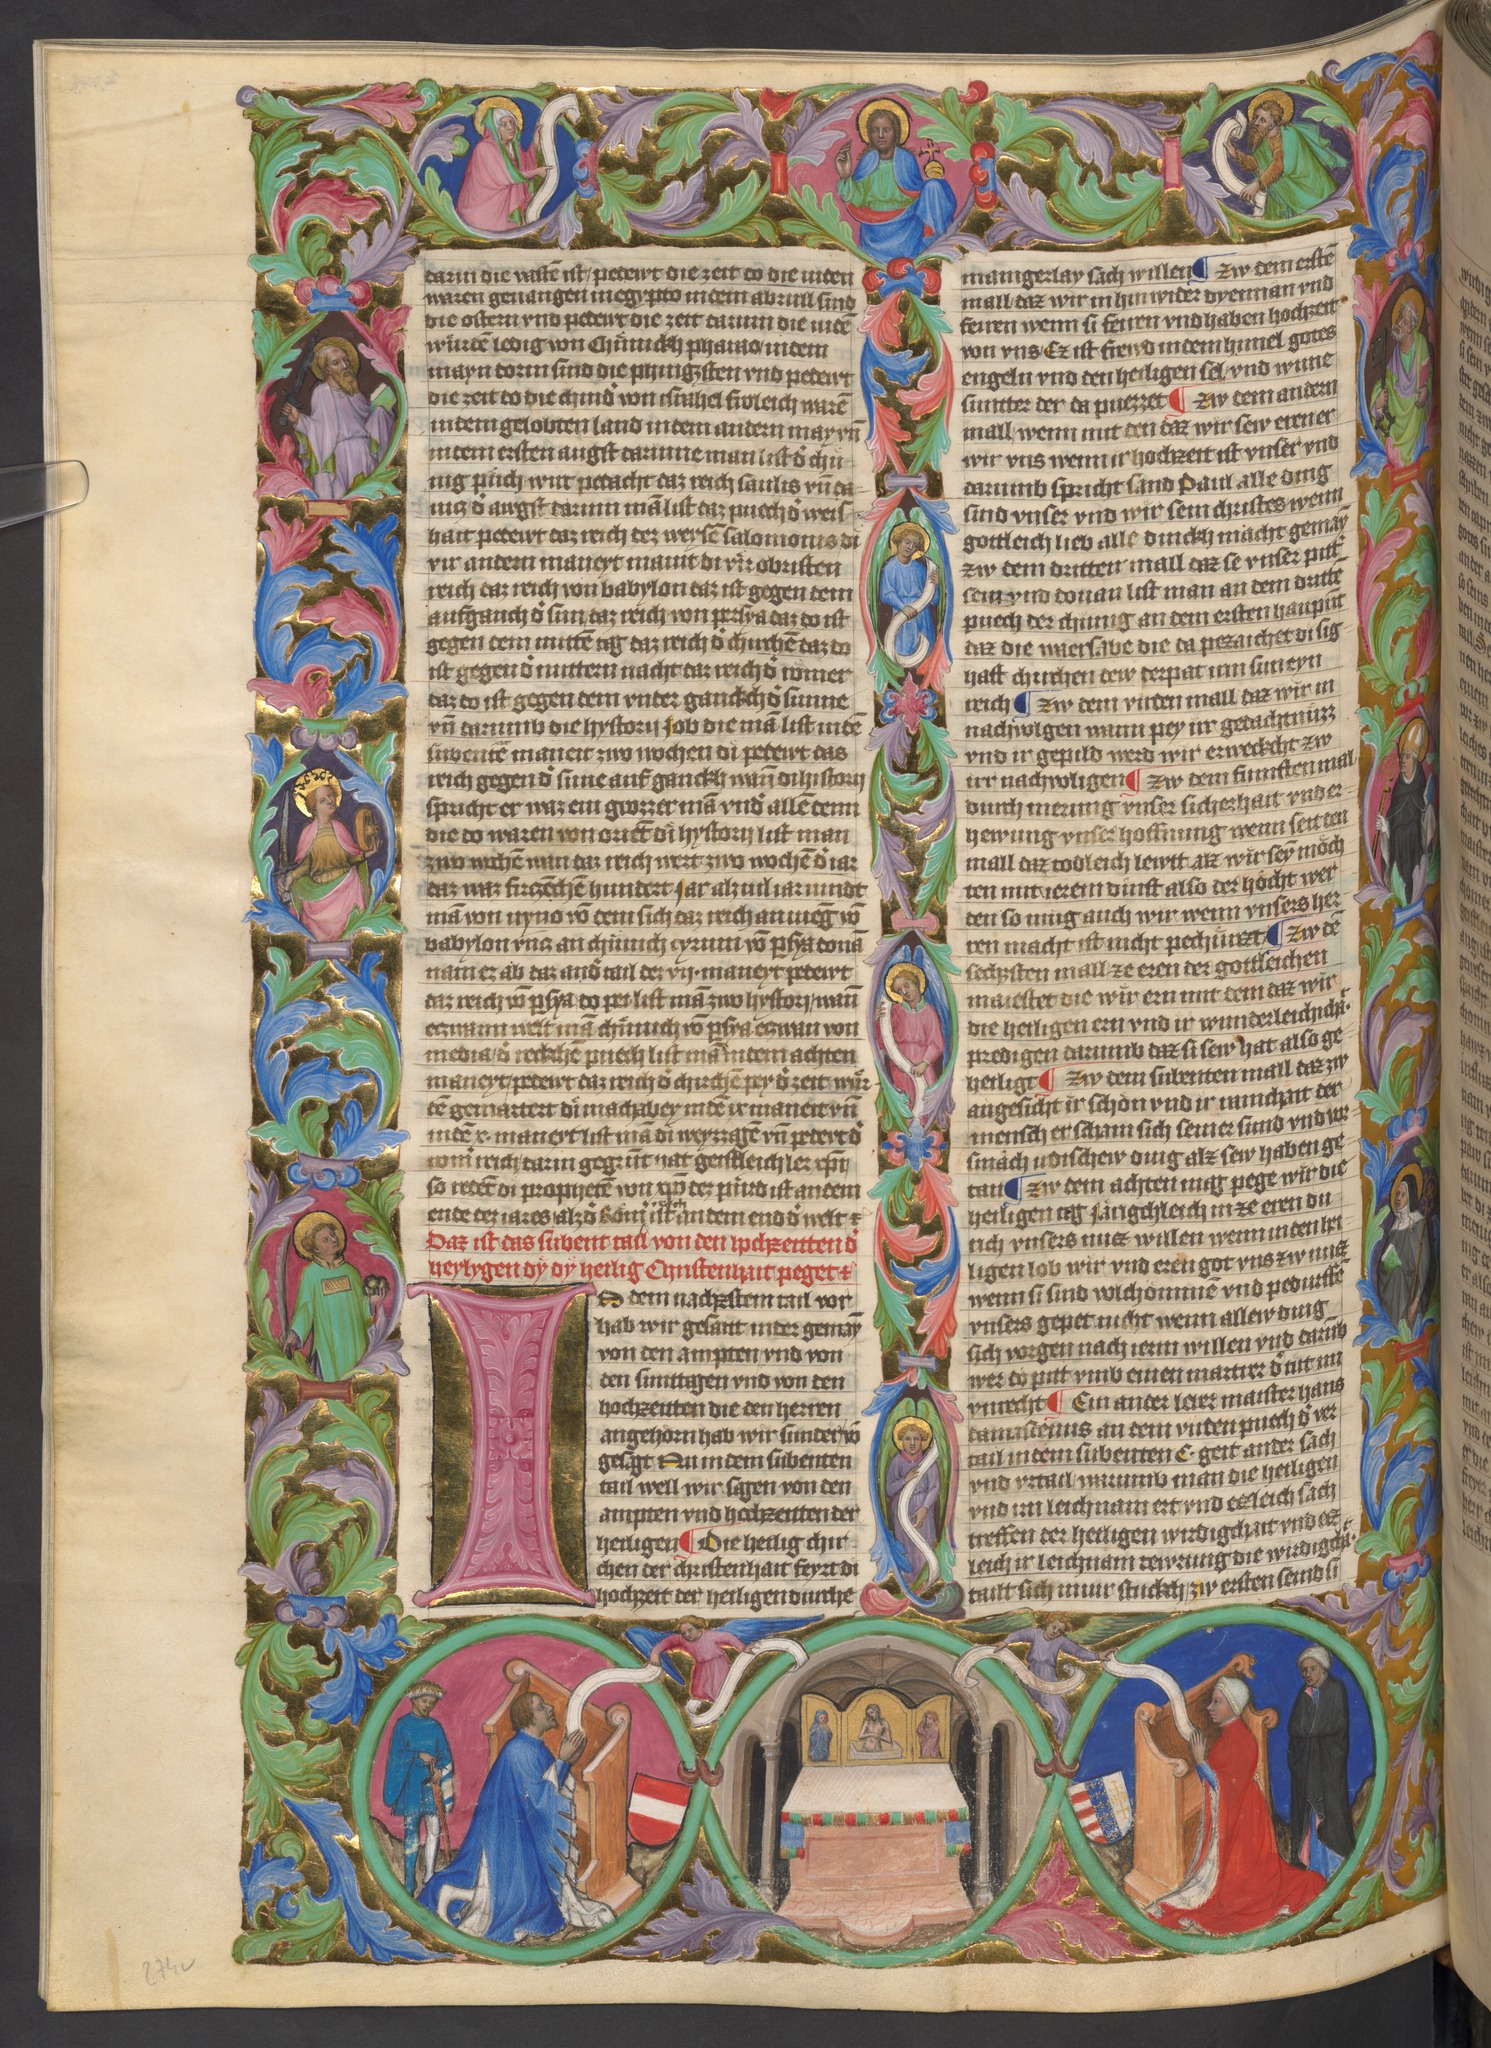 darin die vasten ist / pedewt die zeit do die iuden
waren geuangen in egypto in dem abrill sind
die ostern vnd pedewt die zeit darinn die iudē
wurdē ledig von Chūnickh pharao / in dem
mayn dorin sind die phingsten vnd pedewt
die zeit do die chind von israhel froleich warē
in dem gelobten land in dem andern may vn̄
in dem ersten augst darinne man list d' chu-
nig puch wirt pedacht daz reich saulis vn̄ da
uitz d' augst darinn mā list daz puech d' weis-
hait pedewt daz reich dez weysē salomonis di
vir andern maneyt maint di vir obristen
reich daz reich von babylon daz ist gegen dem
aufganch d' sun daz reich von persya daz do ist
gegen dem mittē tag daz reich d' chrichē daz do
ist gegen d' mittern nacht daz reich d' romer
daz do ist gegen dem vnter ganckh d' sunne
vn̄ darumb die hystorij Job die mā list in dē
subentē maneit zwo wochen di pedewt das
reich gegen d' sune auf ganckh wan̄ di historij
spricht er waz ein grozzer mā vnd' allē denn
die do waren von oriēt di hystorij list man
zwo wochē wan daz reich wert zwo wochē d' iar
daz waz firczēchē hundert Jar alz vil iar vindt
mā von nyno vō dem sich daz reich an vieng vō
babylon vntz an chünich cyrum vō psya do nā
nam er ab daz and' tail dez vij. maneyt pedewt
daz reich vō psya do pei list mā zwo hystorj / wan̄
eczwann nent mā chünich vō psya eczwan von
media / d' reckchē puech list mā in dem achten
maneyt / pedewt daz reich d' chrichē pey d' zeit wur-
dē gemartert di machabey in dē ix maneit vn̄
in dē x. maneyt list mā di weyzzagē vn̄ pedewt d'
rom' reich / darin gegrūt hat geistleich ler xp̄i
so redēt di prophetē von xp̄o dez pūrd ist an dem
ende dez iares / alz d' kam ist an dem end d' welt ⁊
Daz ist das subent tail von den hochzeitten d'
heyligen dÿ dÿ heilig Christenhait peget ⁊
In dem nachzstem tail vor
hab wir gesait in der gemay
von den ampten vnd von
den sunttagen vnd von den
hochzeitten die den herren
angehorn hab wir sunder vō
gesagt Nu in dem subenten
tail well wir sagen von den
ampten vnd hochzeitten der
heiligen ¶ Die heilig chir-
chen der christenhait feyrt di
hochzeit der heiligen durche
mangerlay sach willen ¶ Zw dem erstē
mall daz wir in hin wider dyennan vnd
feiren wenn si feiren vnd haben hochzeit
von vns Ez ist frewd in dem himel gotes
engeln vnd den heiligen sel / vnd vmme
sunter der da puezzet ¶ Zw dem andern
mall wenn mit den daz wir sew erener
wir vns wenn ir hochzeit ist vnser vnd
darumb spricht sand Paul alle ding
sind vnser vnd wir sein christes wenn
gottleich lieb alle dinckh macht gemay
zw dem dritten mall daz se vnser pitt-
sein vnd douon list man an dem drittē
puech der chünig an dem ersten haupüt
daz die waersabe die da pezaichet di sig-
haft chirchen dew derpat irm sun eyn
reich ¶ Zw dem virden mall daz wir in
nachuolgen wann pey irr gedachtnüzz
vnd ir gepild werd wir erweckcht zw
irr nachuoligen ¶ Zw dem funften mal
durch merung vnser sicherhait vnd er-
hewung vnser hoffnung wenn seit den
mall daz todleich lewtt alz wir sey möch
ten mit ierem dinst also der höcht wer
den so mug auch wir wenn vnsers her
ren macht ist nicht pechürzt ¶ Zw dē
sechsten mall ze eren der gottleichen
maiestet die wir ern mit dem daz wir
die heiligen ern vnd ir wunderleichichā.
predigen darumb daz si sew hat also ge
heiligt ¶ Zw dem subenten mall daz zw
angesicht ir schön vnd ir rainchait der
mensch er scham sich seiner sund vnd vor-
smäch irdischew ding alz sew haben ge
tan ¶ Zw dem achten mag pege wir die
heiligen tag iangchleich in ze eren du
rich vnsers nutz willen wenn in den hei
ligen lob wir vnd eren got vns zw nutz
wenn si sind volchömmē vnd pedurffē
vnsers gepet nicht wenn allew ding
sich vorgen nach ierm willen vnd darūb
wer do pitt vmb einen martrer d' tut im
vnrecht ¶ Ein ander lerer maister hans
damascenus an dem virden puech d' ver
tail in dem subenten C. geit ander sach
vnd vrtail / warumb man die heiligen
vnd irn leichnam ert vnd etzleich sach
treffen der heiligen wirdigchait vnd etz-
leich ir leichnam tewrung die wirdigchā.
tailt sich in uir stuckch / zw ersten seind si
274v